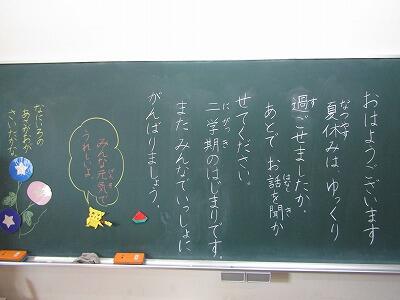 おはようございます
夏休みは、ゆっくり
過ごせましたか。
あとで お話を聞か
せてください。
二学期のはじまりです。
また みんなでいっしょに
がんばりましょう。
みんな元気で
うれしいよ
なにいろの
あさがおが
さいたかな